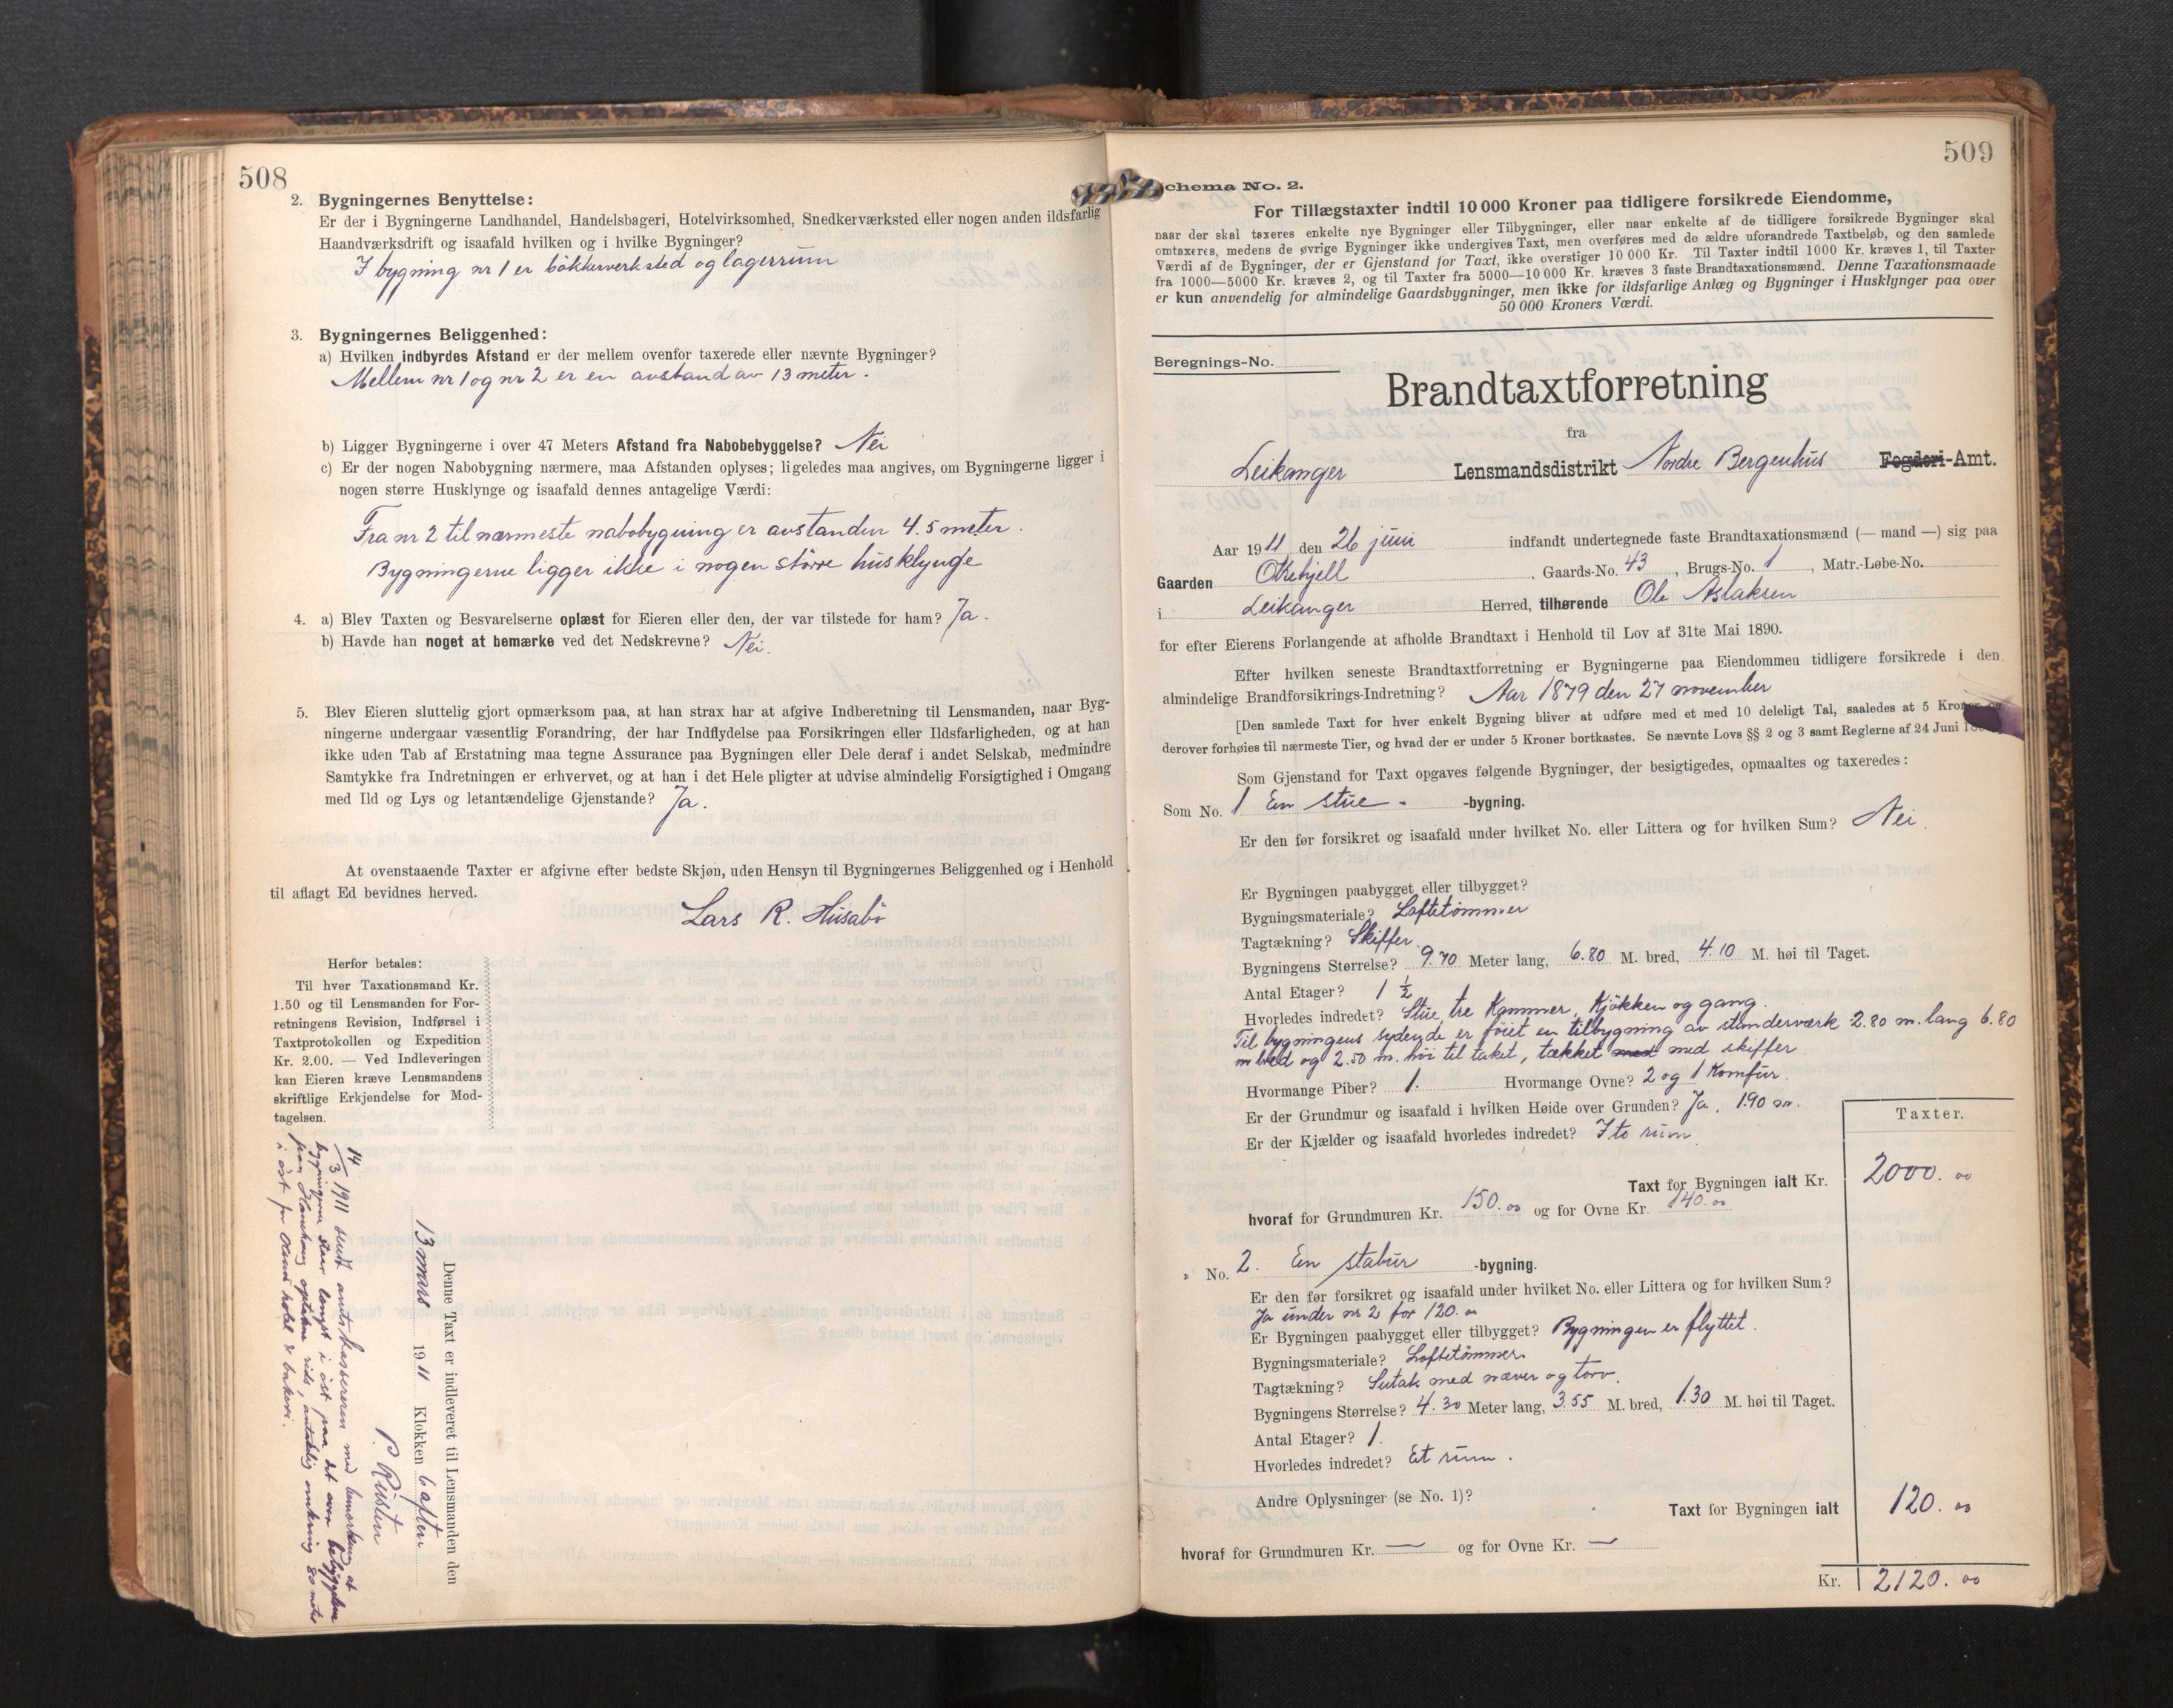 508
2. Bygningernes Benyttelse:
Er der i Bygningerne Landhandel, Handelsbageri, Hotelvirksomhed, Snedkerværksted eller nogen anden ildsfarlig
Haandværksdrift og isaafald hvilken og i hvilke Bygninger?
I bygning nr 1 er bökkerverksted og lagerrum
3. Bygningernes Beliggenhed:
a) Hvilken indbyrdes Afstand er der mellem ovenfor taxerede eller nævnte Bygninger?
Mellem nr 1 og nr 2 er en avstand av 13 meter.
b) Ligger Bygningerne i over 47 Meters Afstand fra Nabobebyggelse? Nei
c) Er der nogen Nabobygning nærmere, maa Afstanden oplyses; ligeledes maa angives, om Bygningerne ligger i
nogen større Husklynge og isaafald dennes antagelige Værdi:
Fra nr 2 til nærmeste nabobygning er avstanden 4.5 meter.
Bygningerne ligger ikke i nogen större husklynge
4. a) Blev Taxten og Besvarelserne oplæst for Eieren eller den, der var tilstede for ham? Ja.
b) Havde han noget at bemærke ved det Nedskrevne? Nei.
5. Blev Eieren sluttelig gjort opmærksom paa, at han strax har at afgive Indberetning til Lensmanden, naar Byg-
ningerne undergaar væsentlig Forandring, der har Indflydelse paa Forsikringen eller Ildsfarligheden, og at han
ikke uden Tab af Erstatning maa tegne Assurance paa Bygningen eller Dele deraf i andet Selskab, medmindre
Samtykke fra Indretningen er erhvervet, og at han i det Hele pligter at udvise almindelig Forsigtighed i Omgang
med Ild og Lys og letantændelige Gjenstande? Ja.
At ovenstaaende Taxter er afgivne efter bedste Skjøn, uden Hensyn til Bygningernes Beliggenhed og i Henhold
til aflagt Ed bevidnes herved.
Lars R. Husabö
Herfor betales:
Til hver Taxationsmand Kr.
1.50 og til Lensmanden for For-
retningens Revision, Indførsel i
Taxtprotokollen og Expedition
Kr. 2.00. — Ved Indleveringen
kan Eieren kræve Lensmandens
skriftlige Erkjendelse for Mod-
tagelsen.
Denne Taxt er indleveret til Lensmanden den
13 mars 1911 Klokken 6 aften
P. Risten
14/3 1911 sendt amtskassereren med bemerkning at
bygningerne staar længst i öst paa det
fra Hanehaug optatte rids, antakelig omkring 80 meter
i öst for
509
Schema No. 2.
For Tillægstaxter indtil 10 000 Kroner paa tidligere forsikrede Eiendomme,
naar der skal taxeres enkelte nye Bygninger eller Tilbygninger, eller naar enkelte af de tidligere forsikrede Bygninger skal
omtaxeres, medens de øvrige Bygninger ikke undergives Taxt, men overføres med de ældre uforandrede Taxtbeløb, og den samlede
Værdi af de Bygninger, der er Gjenstand for Taxt, ikke overstiger 10 000 Kr. Til Taxter indtil 1000 Kr. kræves 1, til Taxter
fra 1000—5000 Kr. kræves 2, og til Taxter fra 5000—10 000 Kr. kræves 3 faste Brandtaxationsmænd. Denne Taxationsmaade
er kun anvendelig for almindelige Gaardsbygninger, men ikke for ildsfarlige Anlæg og Bygninger i Husklynger paa over
50 000 Kroners Værdi.
Beregnings-No.
Brandtaxtforretning
fra
Leikanger Lensmandsdistrikt Nordre Bergenhus Fogderi-Amt.
Aar 1911 den 26 juni indfandt undertegnede faste Brandtaxationsmænd (— mand —) sig paa
Gaarden Otrehjell, Gaards-No. 43, Brugs-No. 1, Matr.-Løbe-No.
i Leikanger Herred, tilhørende Ole Aslaksen
for efter Eierens Forlangende at afholde Brandtaxt i Henhold til Lov af 31te Mai 1890.
Efter hvilken seneste Brandtaxtforretning er Bygningerne paa Eiendommen tidligere forsikrede i den
almindelige Brandforsikrings-Indretning? Aar 1879 den 27 november
[Den samlede Taxt for hver enkelt Bygning bliver at udføre med et med 10 deleligt Tal, saaledes at 5 Kroner og
derover forhøies til nærmeste Tier, og hvad der er under 5 Kroner bortkastes. Se nævnte Lovs §§ 2 og 3 samt Reglerne af 24 Juni
Som Gjenstand for Taxt opgaves følgende Bygninger, der besigtigedes, opmaaltes og taxeredes:
Som No. 1 En stue -bygning.
Er den før forsikret og isaafald under hvilket No. eller Littera og for hvilken Sum? Nei
Er Bygningen paabygget eller tilbygget?
Bygningsmateriale? Laftetömmer
Tagtækning? Skiffer.
Bygningens Størrelse? 9.70 Meter lang, 6.80 M. bred, 4.10 M. høi til Taget.
Antal Etager? 1 ½
Hvorledes indredet? Stue, tre Kammer, Kjökken og gang.
Til bygningens sydende er föiet en tilbygning av stenderværk 2.80 m. lang 6.80
m bred og 2.50 m. höi til taket, tækket med med skiffer
Hvormange Piber? 1. Hvormange Ovne? 2 og 1 Komfur.
Er der Grundmur og isaafald i hvilken Høide over Grunden? Ja, 1.90 m.
Er der Kjælder og isaafald hvorledes indredet? I to rum.
Taxter.
Taxt for Bygningen ialt Kr. 2000.00
hvoraf for Grundmuren Kr. 150.00 og for Ovne Kr. 140.00
" No. 2. En stabur -bygning.
Er den før forsikret og isaafald under hvilket No. eller Littera og for hvilken Sum?
Ja under nr 2 for 120.00
Er Bygningen paabygget eller tilbygget? Bygningen er flyttet.
Bygningsmateriale? Loftetömmer.
Tagtækning? Sutak med næver og torv.
Bygningens Størrelse? 4.30 Meter lang, 3.55 M. bred, 1.30 M. høi til Taget.
Antal Etager? 1.
Hvorledes indredet? Et rum.
Andre Oplysninger (se No. 1)?
Taxt for Bygningen ialt 120.00
hvoraf for Grundmuren Kr. — og for Ovne Kr. —
Kr. 2120.00